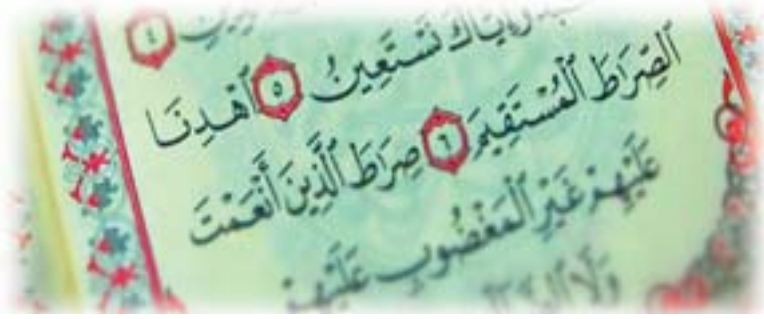 ٤
وَإِيَّاكَ نَسْتَعِينُ ٥ ٱهْدِنَا
ٱلصِّرَٰطَ ٱلْمُسْتَقِيمَ ٦ صِرَٰطَ ٱلَّذِينَ أَنْعَمْتَ
عَلَيْهِمْ غَيْرِ ٱلْمَغْضُوبِ عَلَيْهِمْ
وَلَا